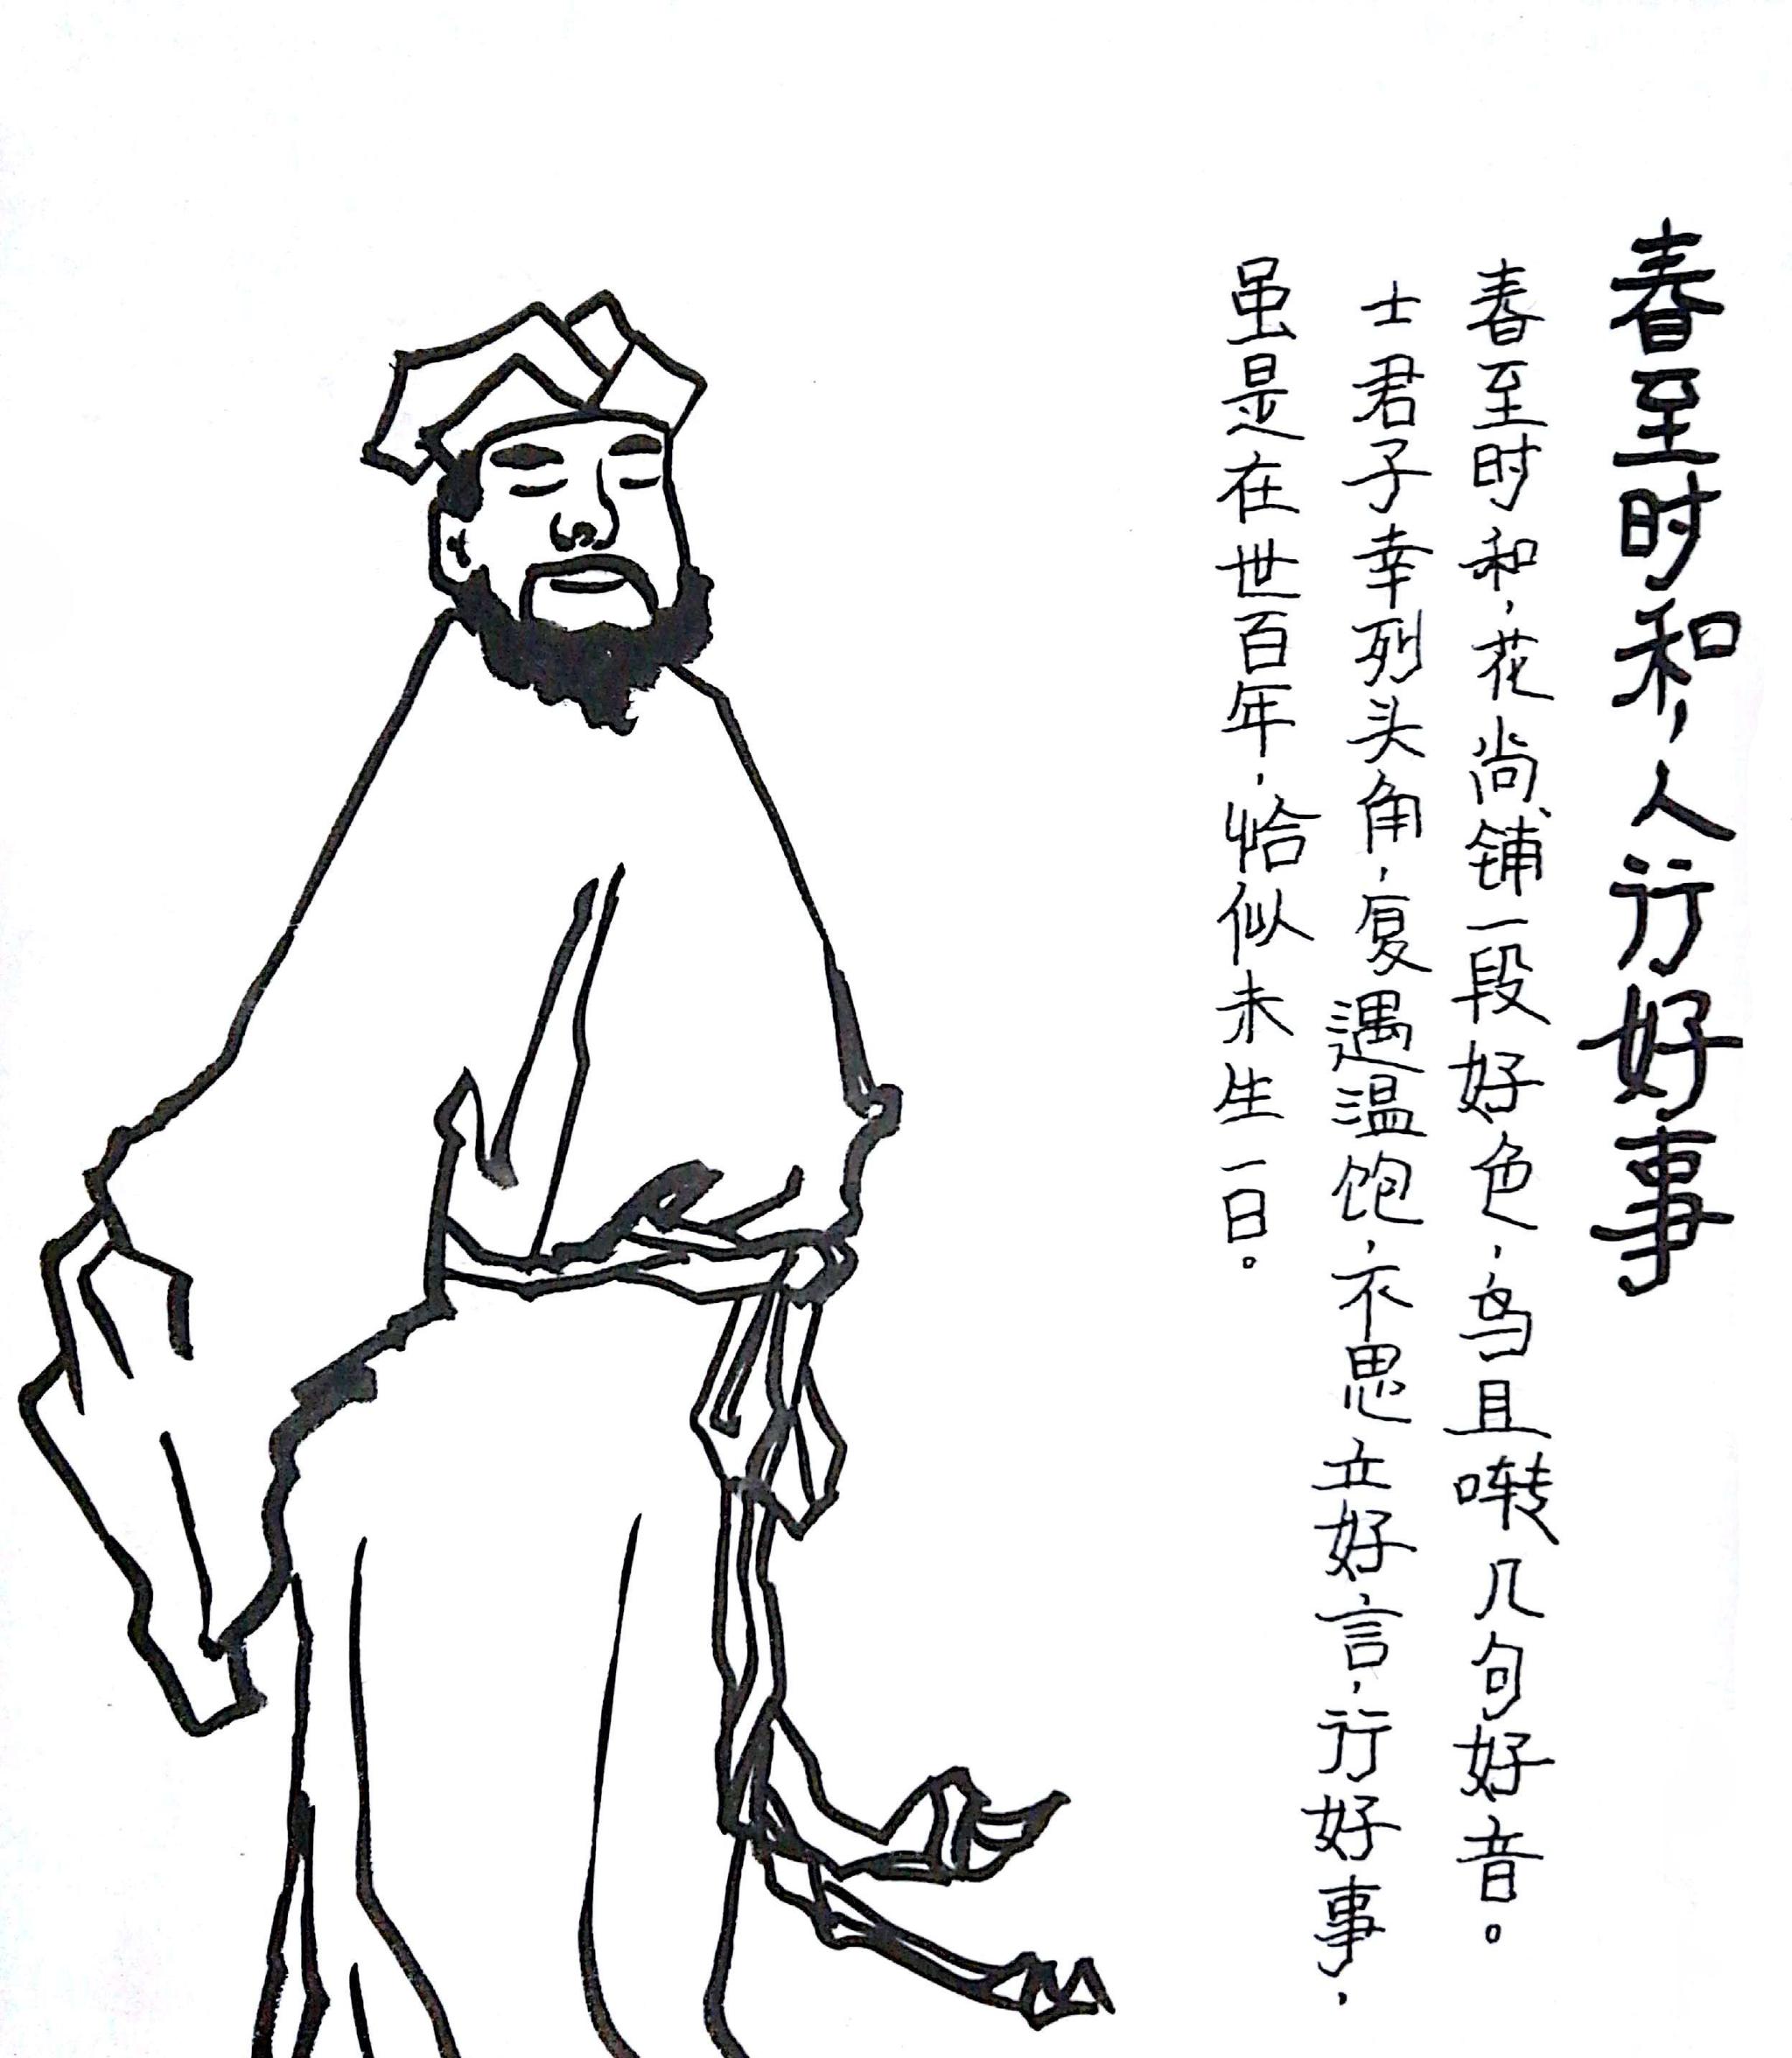 春至时和，人行好事
春至时和，花尚铺一段好色，鸟且啭几句好音。
士君子幸列头角，复遇温饱，不思立好言，行好事，
虽是在世百年，恰似未生一日。